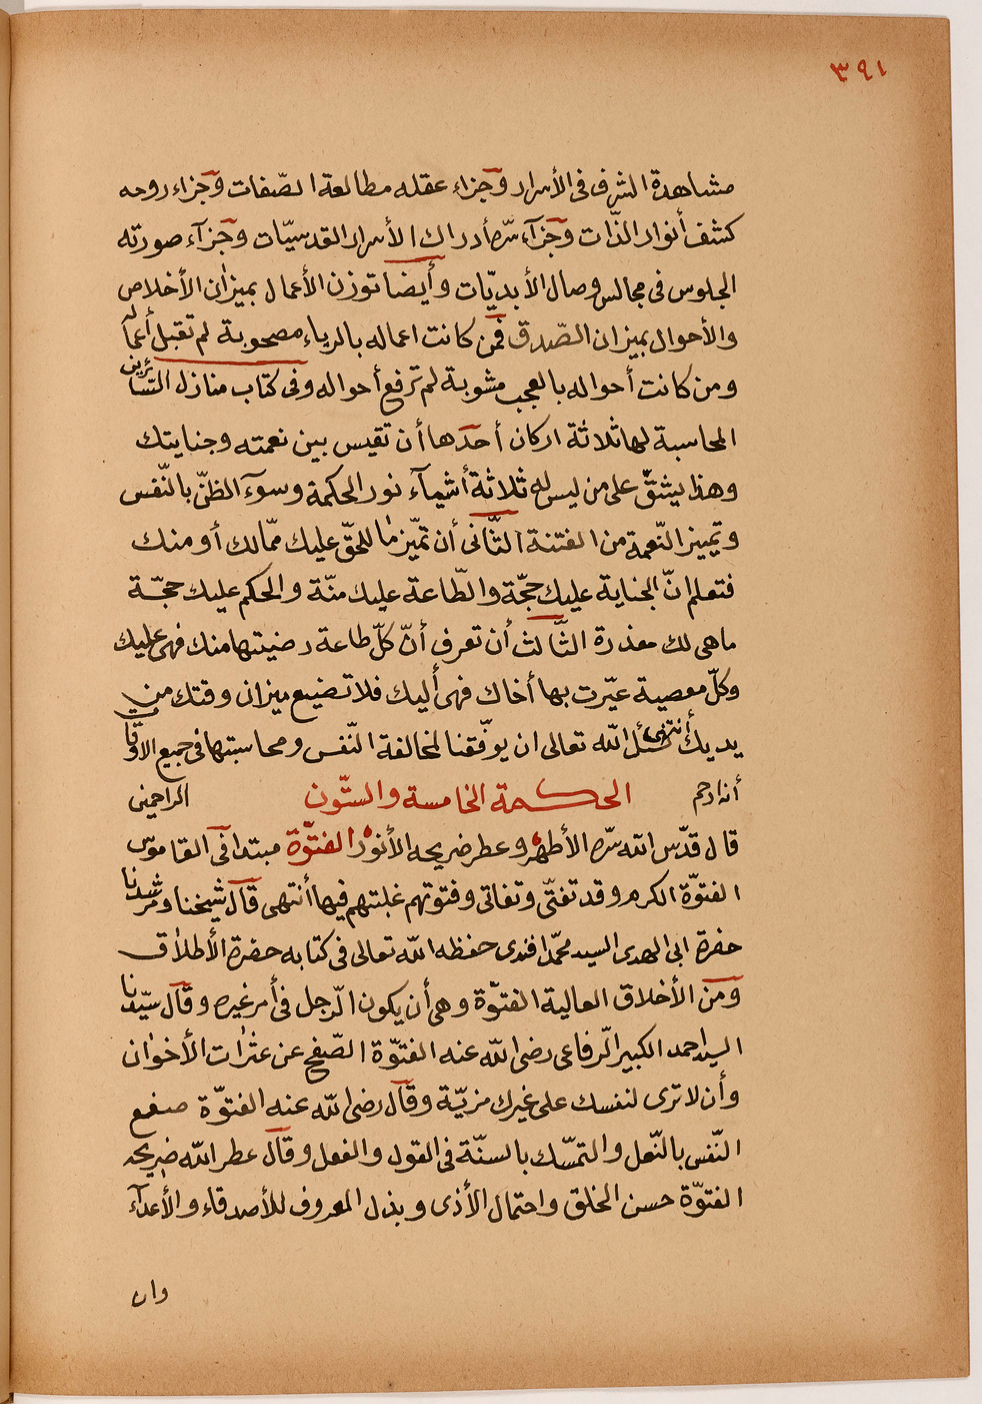 ٣٩١
مشاهدة الشرف فى الأسرار وجزاء عقله مطالعة الصّفات وجزاء روحه
كشف أنوار الذّات وجزآء سرّه أدراك الأسرار القدسيّات وجزآء صورته
الجلوس فى مجالس وصال الأبديّات وأيضا توزن الأعمال بميزان الأخلاص
والأحوال بميزان الصّدق فمن كانت اعماله بالرياء مصحوبة لم تقبل أعماله
ومن كانت أحواله بالعجب مشوبة لم ترفع أحواله وفى كتاب منازل السّائرين
المحاسبة لها ثلاثة اركان أحدها أن تقيس بين نعمته وجنايتك
وهذا يشقّ على من ليس له ثلاثة أشيآء نور الحكمة وسوء الظنّ بالنّفس
وتمييز النّعمة من الفتنة الثّانى أن تميّز ما للحقّ عليك ممّا لك أو منك
فتعلم انّ الجناية عليك حجّة والطّاعة عليك منّة والحكم عليك حجّة
ما هى لك معذرة الثّالث أن تعرف أنّ كلّ طاعة رضيتها منك فهى عليك
وكلّ معصية عيّرت بها أخاك فهى أليك فلا تضيع ميزان وقتك من
يديك أنتهى نسئل الله تعالى ان يوفّقنا لمخالفة النّفس ومحاسبتها فى جميع الاوقات
أنه ارحم الراحمين
الحكمة الخامسة والستّون
قال قدّس الله سرّه الأطهر وعطر ضريحه الأنور الفتوّة مبتدا فى القاموس
الفتوّة الكرم وقد تفتّى وتفاتى وفتوتهم غلبتهم فيها أنتهى قال شيخنا ومرشدنا
حضرة ابى الهدى السيد محمّد افندى حفظه الله تعالى فى كتابه حضرة الأطلاق
ومن الأخلاق العالية الفتوّة وهى أن يكون الرّجل فى أمر غيره وقال سيّدنا
السيد احمد الكبير الرّفاعى رضى الله عنه الفتوّة الصّفح عن عثرات الأخوان
وأن لا ترى لنفسك على غيرك مزيّة وقال رضى الله عنه الفتوّة صفع
النّفس بالنّعل والتمسّك بالسنّة فى القول والفعل وقال عطر الله ضريحه
الفتوّة حسن الخلق واحتمال الأذى وبذل المعروف للأصدقاء والأعدآء
وان